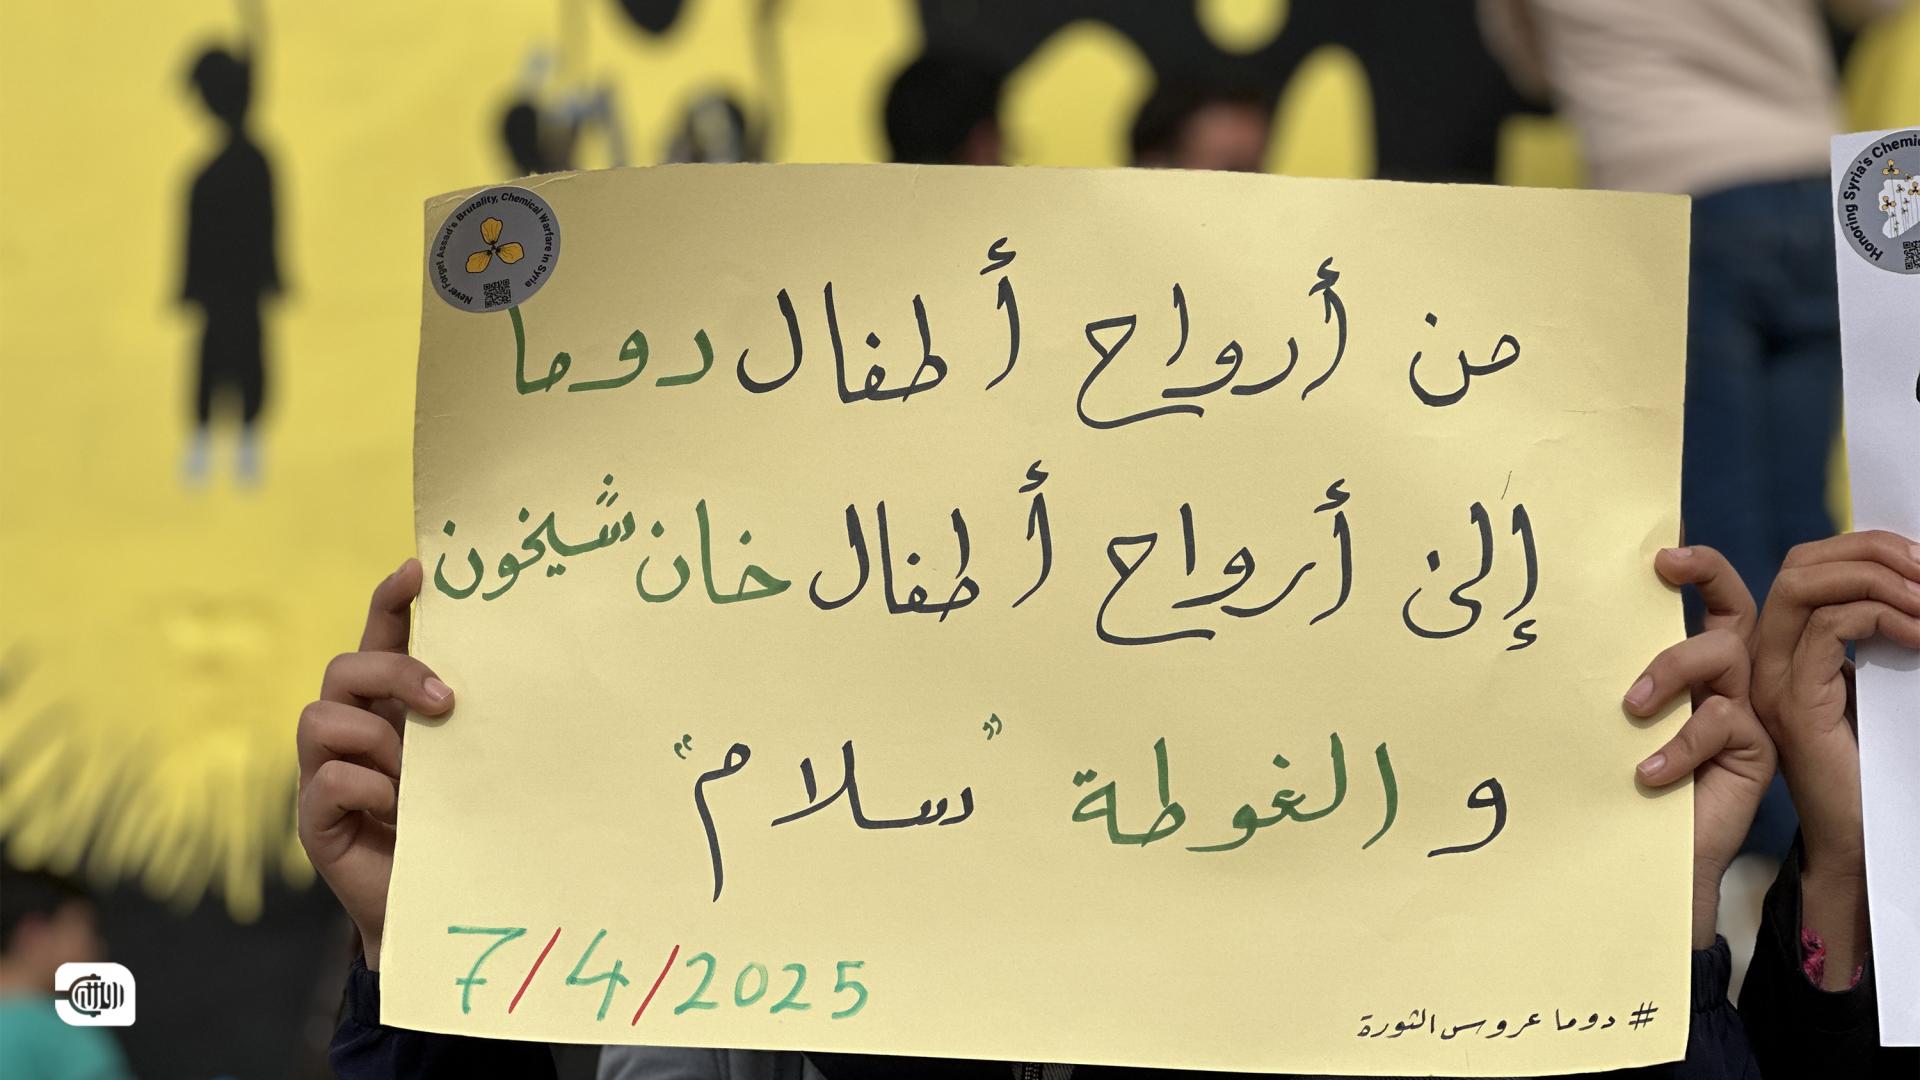 Never Forget Assad's Brutality, Chemical Warfare in Syria
من أرواح أطفال دوما
إلى أرواح أطفال خان شيخون
و الغوطة "سلام"
7/4/2025
# دوما عروس الثورة
Honoring Syria's